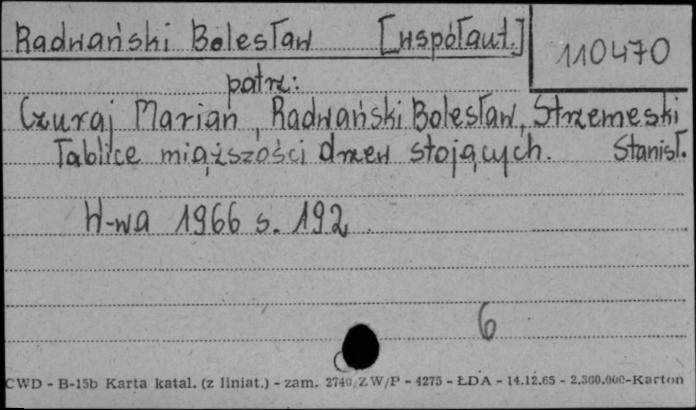 Radwański Bolesław [współaut.]
110470
patrz:
Czuraj Marian, Radwański Bolesław, Strzemeski
Tablice miąższości drzew stojących. Stanisł.
W-wa 1966 s. 192
6
CWD - B-15b Karta katal. (z liniat.) - zam. 2740/ZW/P - 4275 - ŁDA - 14.12.65 - 2.300.000-Karton